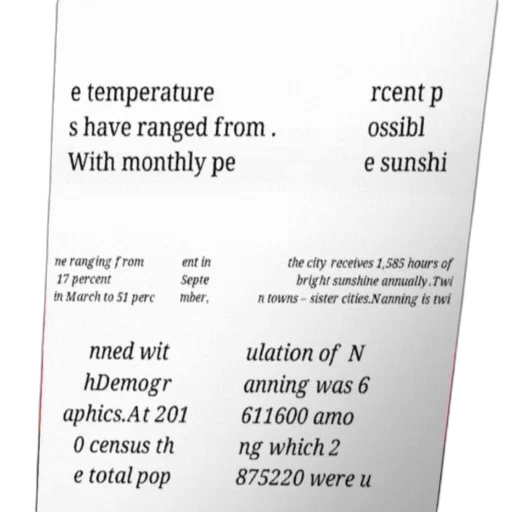 e temperature
s have ranged from .
With monthly pe
rcent p
ossibl
e sunshi
ne ranging from
17 percent
in March to 51 perc
ent in
Septe
mber,
the city receives 1,585 hours of
bright sunshine annually.Twi
n towns – sister cities.Nanning is twi
nned wit
hDemogr
aphics.At 201
0 census th
e total pop
ulation of N
anning was 6
611600 amo
ng which 2
875220 were u